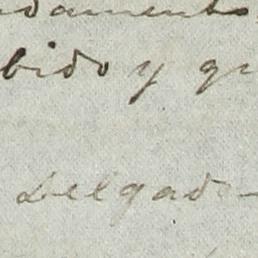 damento
bido y qu
Delgado